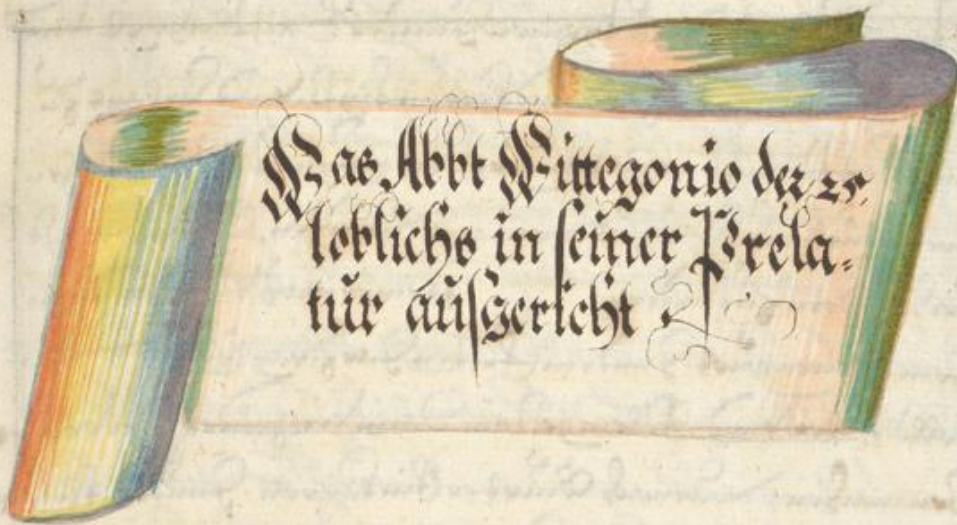 Was Abbt Wittegonio der 25.
loblichs in seiner Prela-
tur außgericht